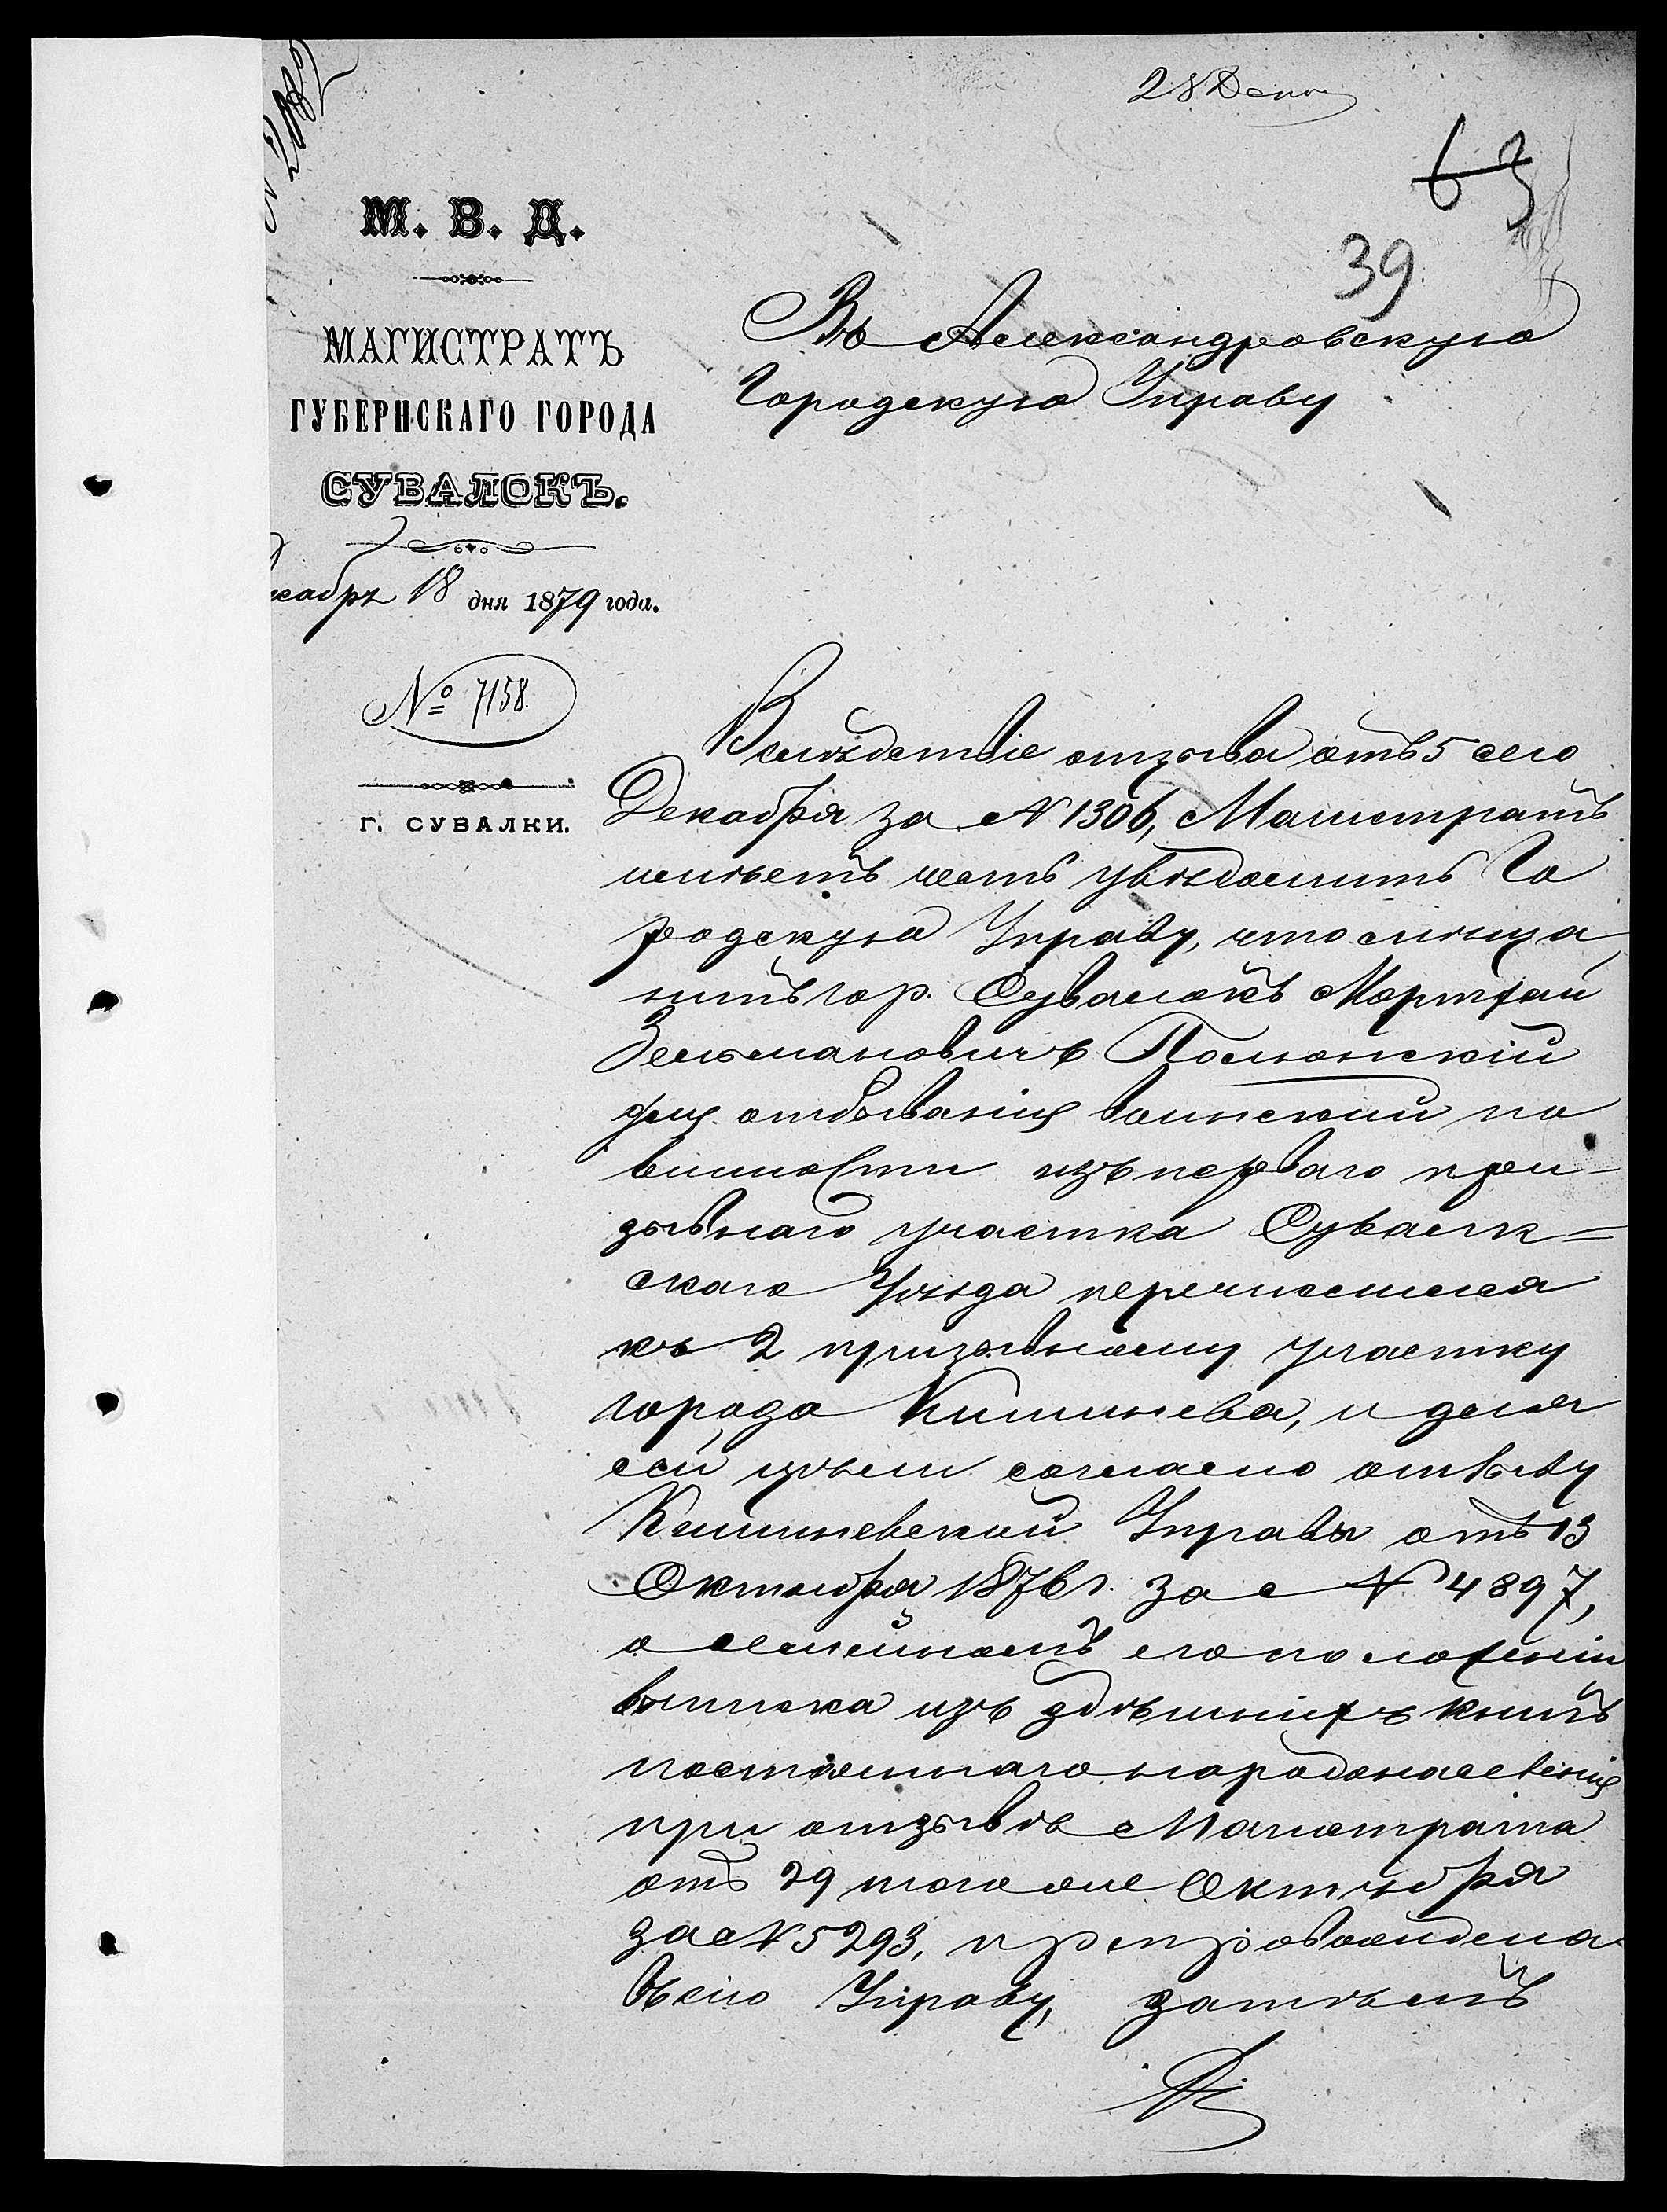 28 Дек
63
39
М. В. Д.
МАГИСТРАТЪ
ГУБЕРНСКАГО ГОРОДА
СУВАЛОКЪ.
кабря 18 дня 1879 года.
№ 7158.
Г. СУВАЛКИ.
Въ Александровскую
Городскую Управу
Вслѣдствіе отзыва отъ 5 сего
Декабря за N 1306, Магистратъ
имѣетъ честь увѣдомить Го
родскую Управу, что мѣща
нинъ гор. Сувалокъ Мортхай
Зельмановичъ Полюнскій
для отбыванія воинской по
винности изъ перваго при-
зывнаго участка Сувалк=
скаго Уѣзда перечислился
къ 2 призывному участку
города Кишинева, и для
сей цѣли согласно отзыву
Кишиневской Управы отъ 13
Октября 1876 г. за N 4897,
о семейномъ его положеніи
выписка изъ здѣшнихъ книгъ
постояннаго народонаселенія
при отзывѣ Магистрата
отъ 29 того же Октября
за N 5293, препровождена
въ сію Управу, затѣмъ